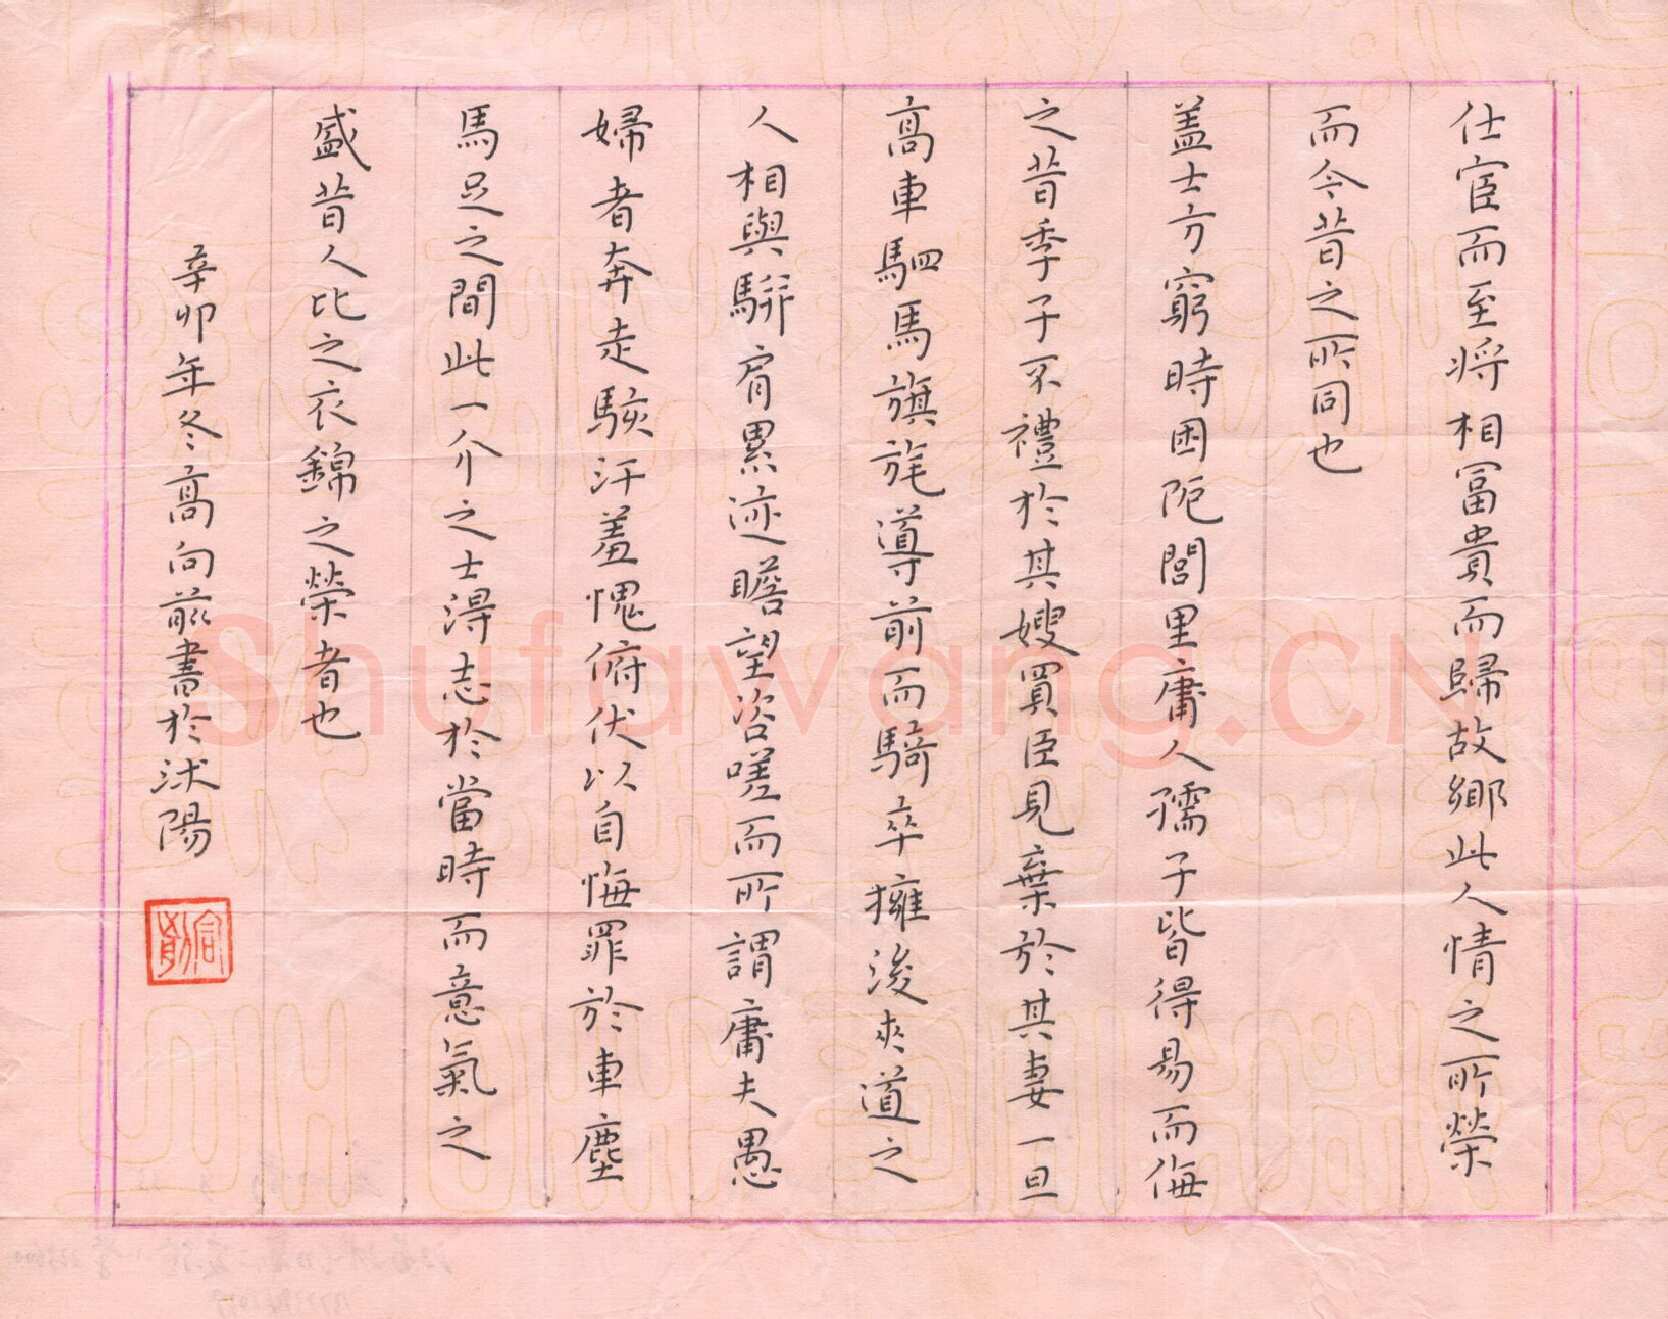 仕宦而至将相冨貴而歸故鄉此人情之所榮
而今昔之所同也
盖士方窮時困阨閭里庸人孺子皆得易而侮
之昔季子不禮於其嫂買臣見棄於其妻一旦
高車駟馬旗旄導前而騎卒擁後夾道之
人相與駢肩累迹瞻望咨嗟而所謂庸夫愚
婦者奔走駭汗羞愧俯伏以自悔罪於車塵
馬足之間此一介之士淂志於當時而意氣之
盛昔人比之衣錦之榮者也
辛卯年冬高向前書於沭陽
Shufawang.CN